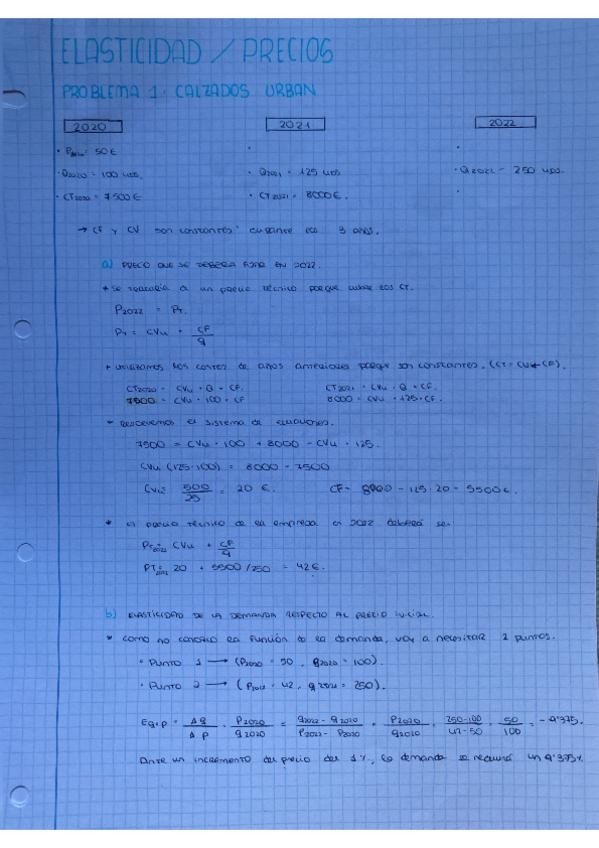 ELASTICIDAD / PRECIOS
PROBLEMA 1: CALZADOS URBAN
2020 2021 2022
= 50 €
Q2020 = 100 uds. · Q2021 = 125 uds · Q2022 = 250 uds.
· CT2020 = 7500 € · CT2021 = 8000 €.
→ CF y CV son constantes durante los 3 años.
a) PRECIO QUE SE DEBERÍA FIJAR EN 2022.
* Se trataría de un precio técnico porque cubre los CT.
P2022 = PT.
PT = CVu + CF/q
* Utilizamos los costes de años anteriores porque son constantes. (CT = CV + CF).
CT2020 = CVu · Q + CF. CT2021 = CVu · Q + CF.
7500 = CVu · 100 + CF 8000 = CVu · 125 + CF.
* Resolvemos el sistema de ecuaciones.
7500 = CVu · 100 + 8000 - CVu · 125.
CVu (125-100) = 8000 - 7500
CVu = 500/25 = 20 €. CF = 8000 - 125 · 20 = 5500 €.
* El precio técnico de la empresa en 2022 deberá ser
PT2022 = CVu + CF/q
PT2022 = 20 + 5500/250 = 42 €.
b) ELASTICIDAD DE LA DEMANDA RESPECTO AL PRECIO INICIAL.
* Como no conozco la función de la demanda, voy a necesitar 2 puntos.
· Punto 1 → (P2020 = 50, q2020 = 100).
· Punto 2 → (P2022 = 42, q2022 = 250).
Eq,p = Δq/Δp · P2020/q2020 = q2022 - q2020/P2022 - P2020 · P2020/q2020 = 250-100/42-50 · 50/100 = -9'375.
Ante un incremento del precio del 1%, la demanda se reducirá un 9'375%.